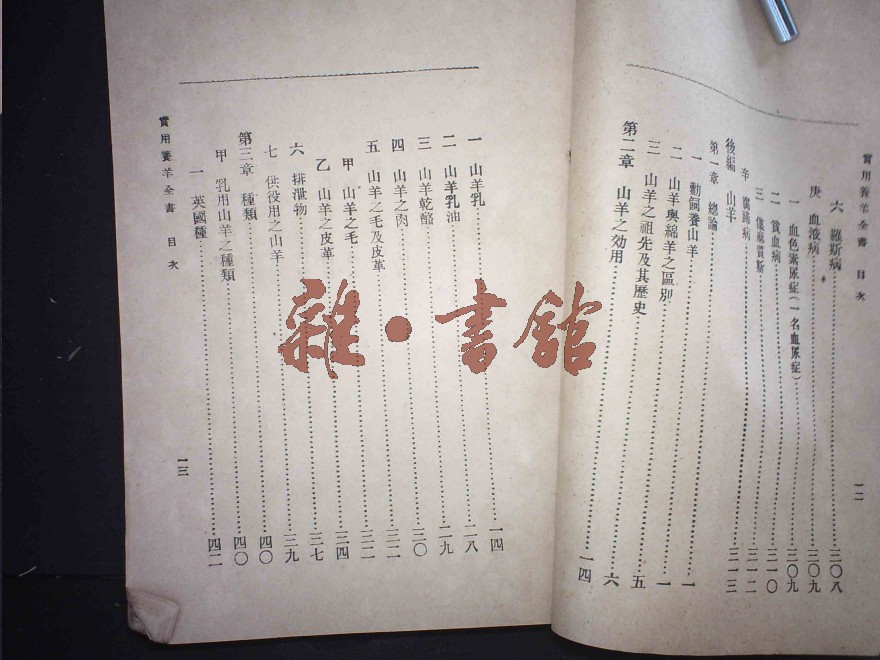 實用養羊全書 目次
一二
六 羅斯病……三〇八
庚 血液病……三〇九
一 血色素尿症(一名血尿症)……三〇九
二 貧血病……三一〇
三 僂麻質斯……三一二
辛 腐蹄病……三一三
後編 山羊
第一章 總論……一
一 勸飼養山羊……一
二 山羊與綿羊之區別……五
三 山羊之祖先及其歷史……六
第二章 山羊之効用……一四
一 山羊乳……一四
二 山羊乳油……二八
三 山羊乾酪……二九
四 山羊之肉……三〇
五 山羊之毛及皮革……三二
甲 山羊之毛……三二
乙 山羊之皮革……三四
六 排泄物……三七
七 供役用之山羊……三九
第三章 種類……四〇
甲 乳用山羊之種類……四〇
一 英國種……四二
實用養羊全書 目次
一三
雜·書館